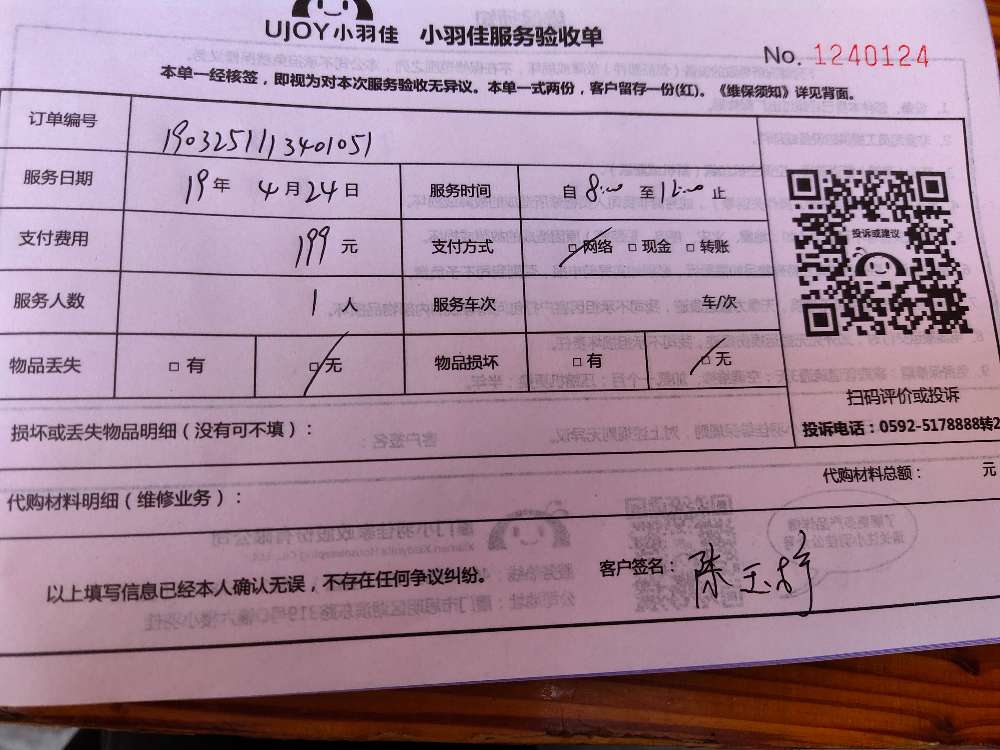 UJOY小羽佳 小羽佳服务验收单
No. 1240124
本单一经核签，即视为对本次服务验收无异议。本单一式两份，客户留存一份(红)。《维保须知》详见背面。
订单编号 1903251113401051
服务日期 19年 4月24日 服务时间 自 8:00 至 12:00 止
支付费用 199 元 支付方式 □网络 □现金 □转账
服务人数 1 人 服务车次 车/次
物品丢失 □有 □无 物品损坏 □有 □无
投诉或建议
扫码评价或投诉
投诉电话：0592-5178888转2
损坏或丢失物品明细（没有可不填）：
代购材料明细（维修业务）： 代购材料总额： 元
以上填写信息已经本人确认无误，不存在任何争议纠纷。 客户签名： 陈玉